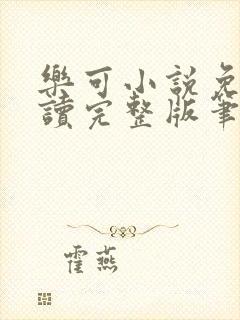 樂可小說免
讀完整版筆
霍燕